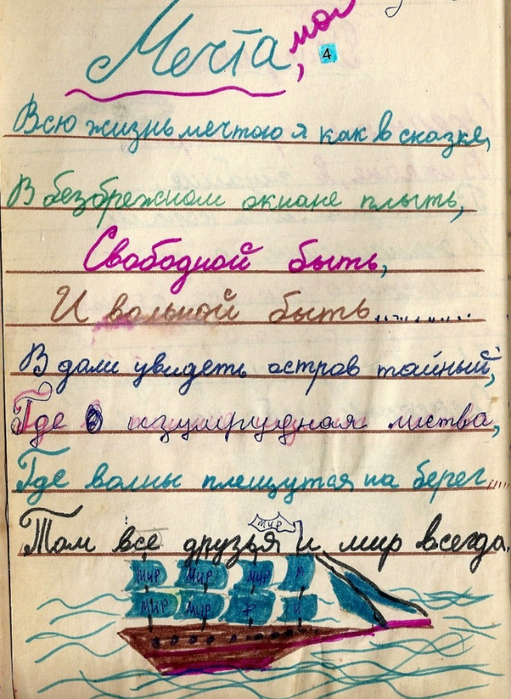 Мечта, моя
4
Всю жизнь мечтою я как в сказке,
В безбрежном окиане плыть,
Свободной быть,
И вольной быть..........
В дали увидеть остров тайный,
Где изумрудная листва,
Где волны плещутся на берег....
Там все друзья и мир всегда.
мир
мир мир мир
мир мир